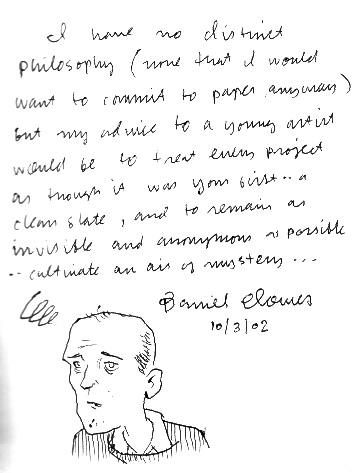 I have no distinct
philosophy (none that I would
want to commit to paper anyway)
but my advice to a young artist
would be to treat every project
as though it was your first.. a
clean slate, and to remain as
invisible and anonymous as possible
.. cultivate an air of mystery...
Daniel Clowes
10/3/02